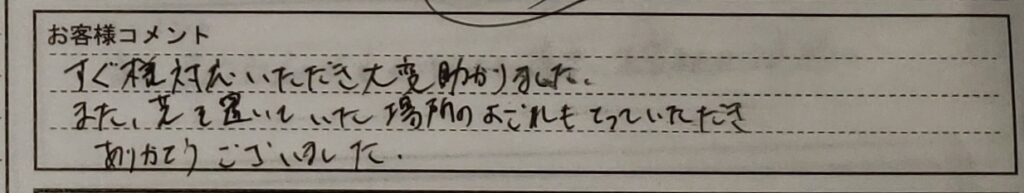 お客様コメント
すぐ様対応いただき大変助かりました。
また、芝を置いていた場所のよごれもとっていただき
ありがとうございました。